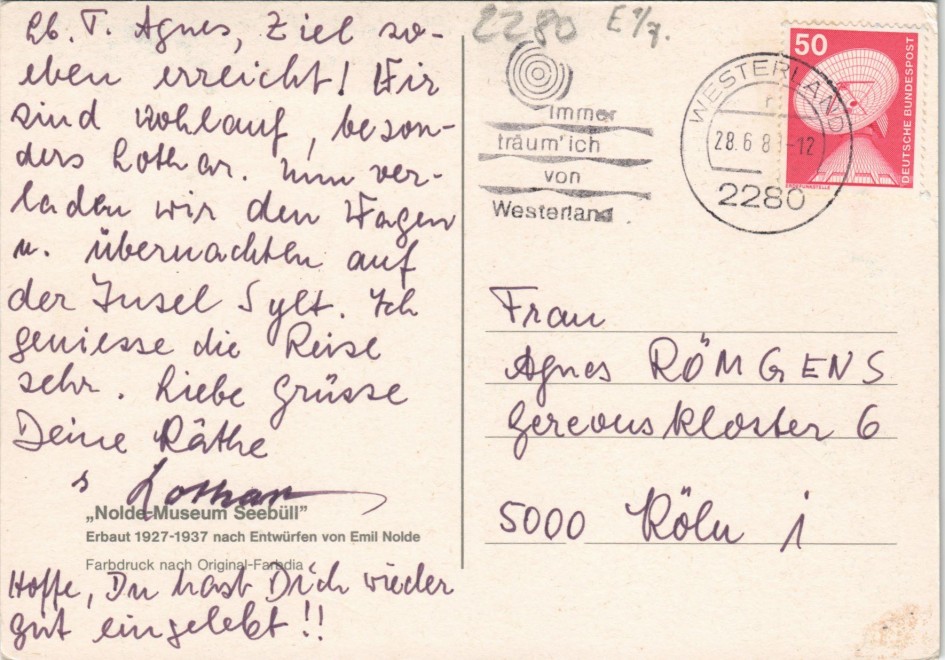 Lb. T. Agnes, Ziel so-
eben erreicht! Wir
sind wohlauf, beson-
ders Lothar. Nun ver-
laden wir den Wagen
u. übernachten auf
der Insel Sylt. Ich
geniesse die Reise
sehr. Liebe Grüsse
Deine Käthe
Lothar
„Nolde-Museum Seebüll”
Erbaut 1927-1937 nach Entwürfen von Emil Nolde
Farbdruck nach Original-Farbdia
Hoffe, Du hast Dich wieder
gut eingelebt!!
2280
immer
träum'ich
von
Westerland
WESTERLAND
28.6.8 -12
2280
50
DEUTSCHE BUNDESPOST
Frau
Agnes RÖMGENS
Gereonskloster 6
5000 Köln 1